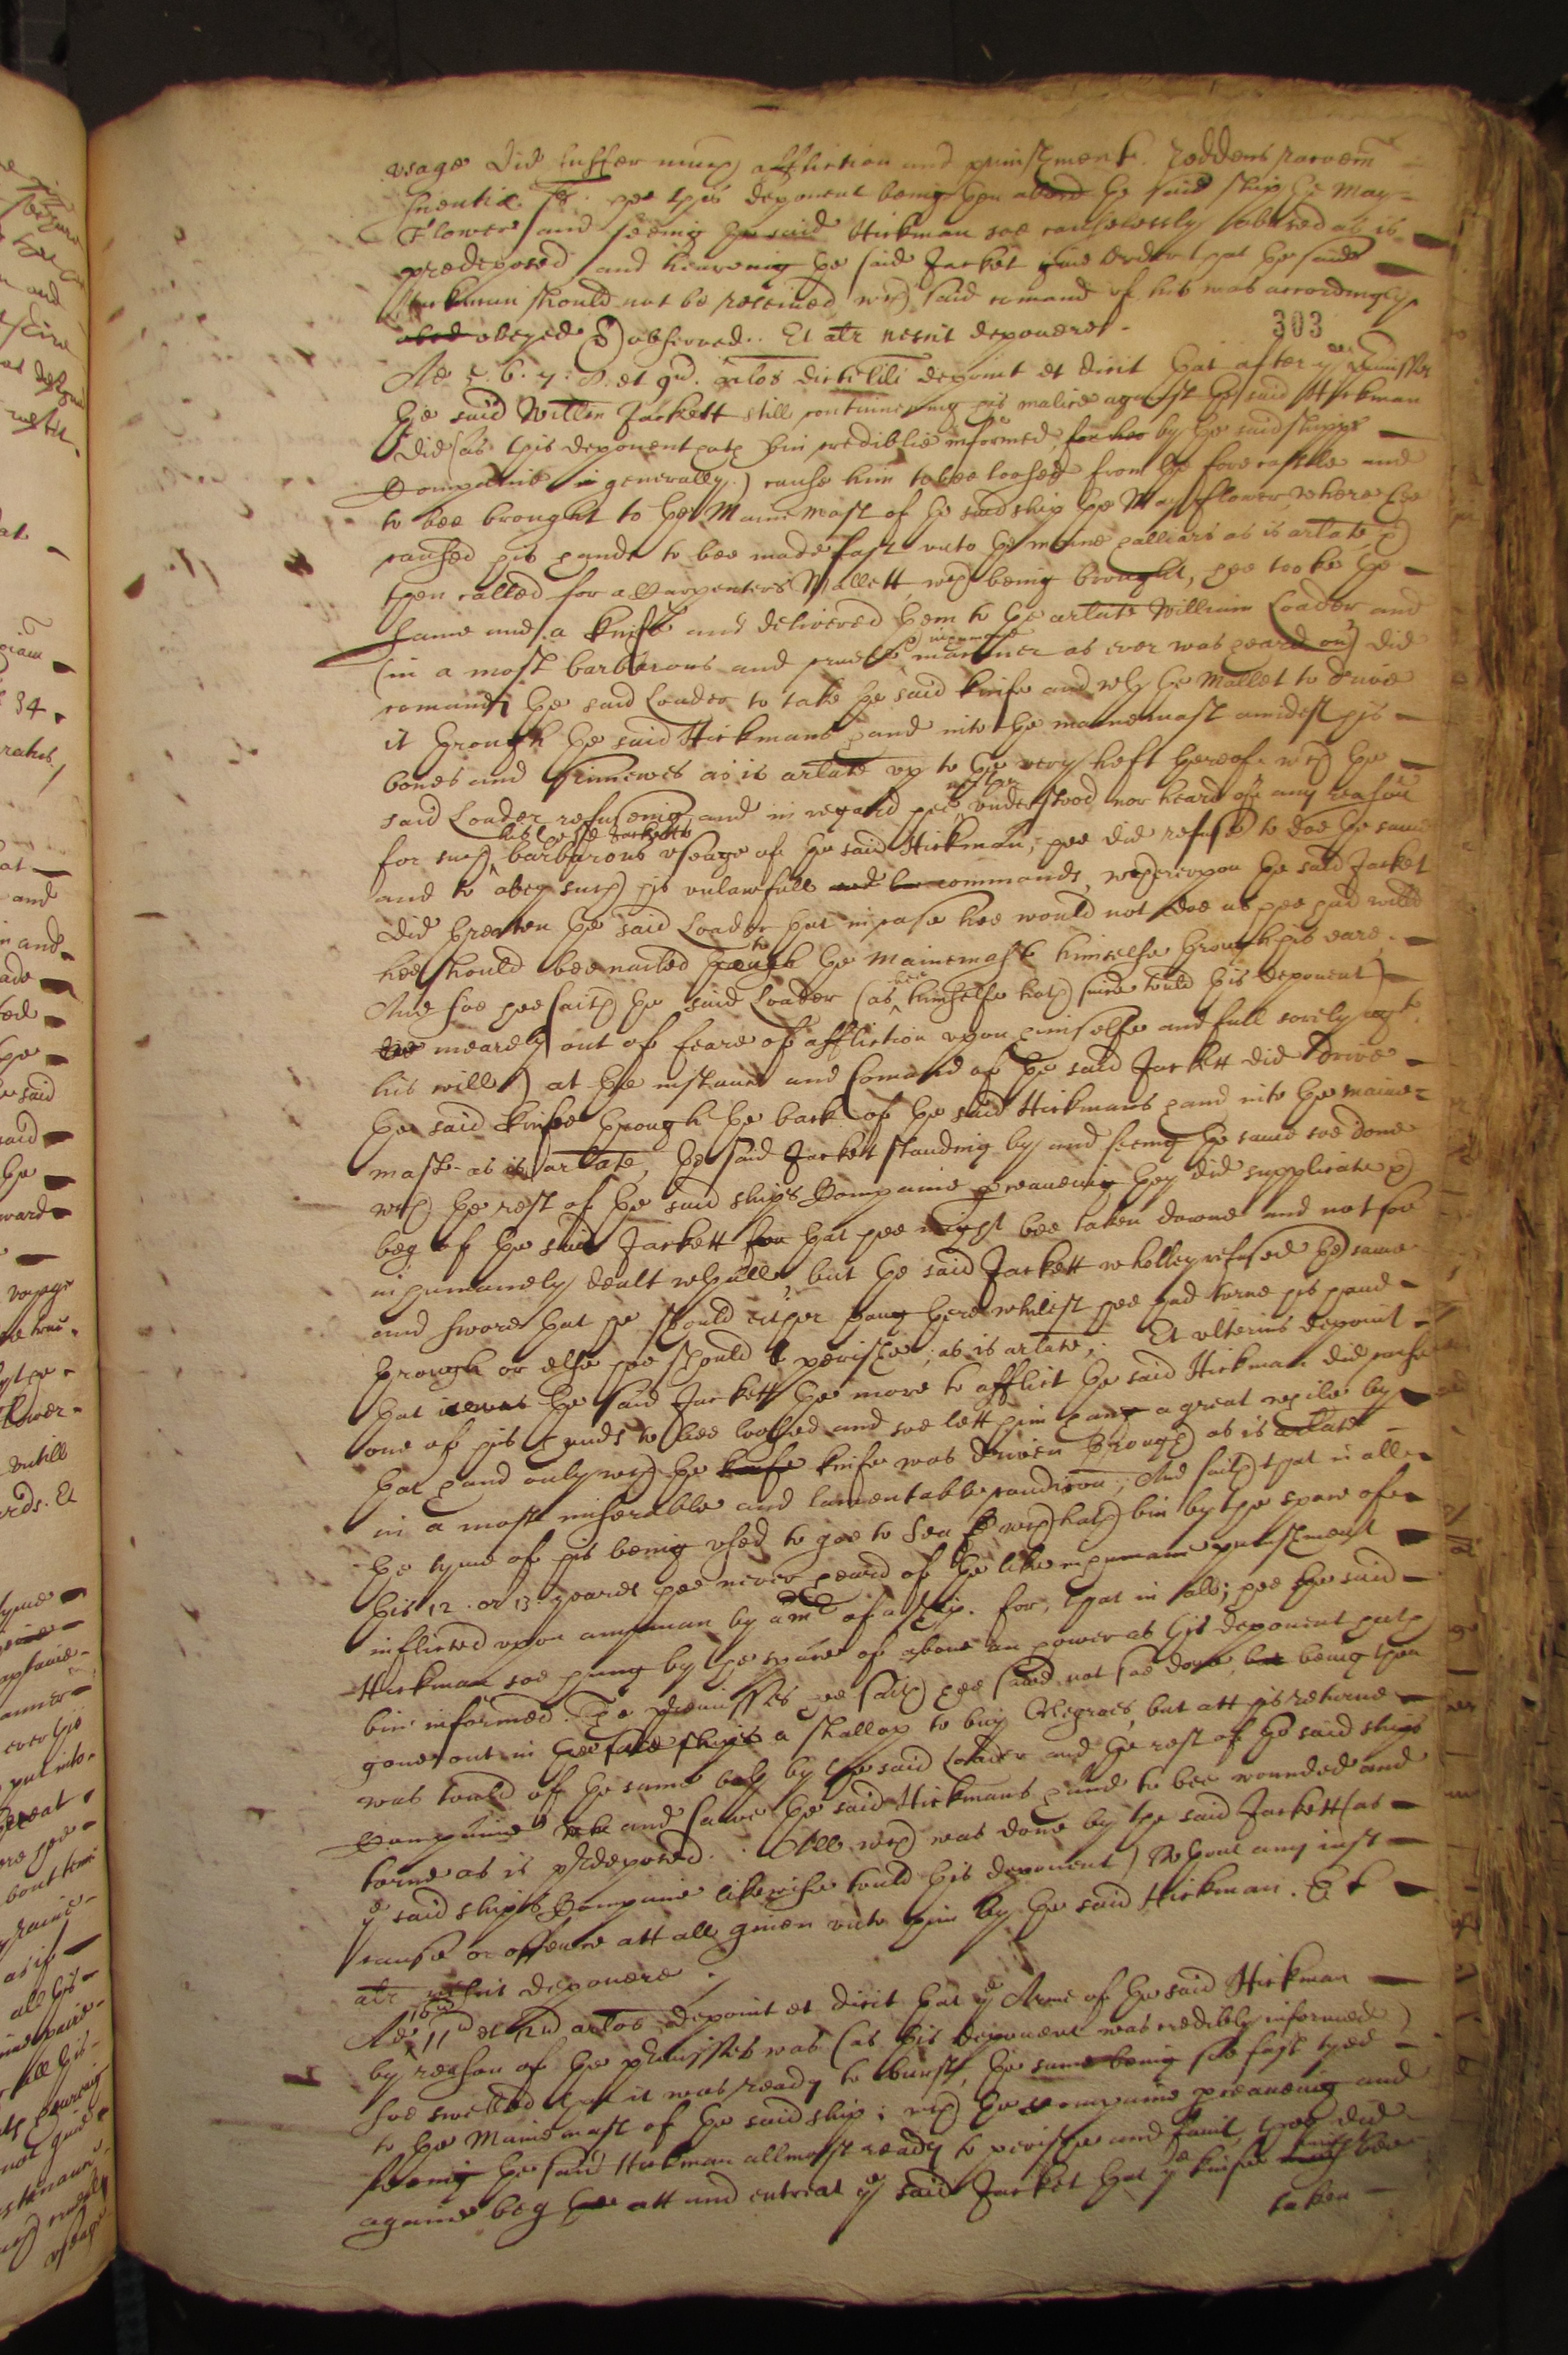 usage did suffer much affliction and punishment. Reddens
scientiæ hee this deponent being then abord the said ship the May-
Flower and seeing the said Hickman soe causelessly abused as is
predeposed and heareing the said Jacket give order that the said
Hickman should not be releived wch said comand of his was accordingly
obed obeyed & observed. Et alr nescit deponere.
303
Ad 5. 6. 7. 8. et 9 articlos dicti lili deponit et dicit that after ye premisses
the said Willm Jackett still continueing his malice against the said Hickman
did (as this deponent hath bin crediblie informed by the said shipps
Companie in generally) cause him to bee loosed from the forecastle and
to bee brought to the Maine mast of the said ship the Mayflower, where hee
caused his hands to bee made fast unto the maine halliars as is arlate &
then called for a Carpenters Mallett, wch being brought, hee tooke the
same and a knife and delivered them to the arlate William Loader and
(in a most barbarous and cruell & inhumane manner as ever was heard on) did
comand the said Loader to take the said knife and wth the Mallet to drive
it through the said Hickmans hand into the mainemast amidest his
bones and sinnewes as is arlate up to the very heft thereof. wch the
said Loader refuseing, and in regard hee neither understood nor heard of any reason
for such barbarous useage of the said Hickman, hee did refuse to doe the same
and to obey such his the said Jacketts unlawfull and commands, whereupon the said Jacket
did threaten the said Loader that in case hee would not doe as hee had willd
hee should bee nailed through to the mainemast himselfe through his eare.
And soe hee saith the said Loader (as hee himselfe hath since tould this deponent)
meerely out of feare of affliction upon himselfe and full sorely agt
his will) at the instance and Comand of the said Jackett did drive
the said knife through the back of the said Hickmans hand into the maine-
mast as is arlate, the said Jackett standing by and seeing the same soe done
wch the rest of the said ships Companie preaveing they did supplicate &
beg of the said Jackett for that hee might bee taken downe and not soe
inhumanely dealt wthall, but the said Jackett wholley refused the same
and swore that he should either hang there whilest hee had torne his hand
through or else hee should perishe, as is arlate. Et ulterius deponit
that the said Jackett the more to afflict the said Hickman did cause
one of his hands to bee loosed and soe lett him hang a great while by
that hand only wch the knife knife was driven through as is arlate
in a most miserable and lamentable condicon, And saith that in all
the tyme of his being used to goe to Sea wch hath bin by the space of
this 12. or 13 yeares hee never heard of the like inhumane punishment
inflicted upon any man by a mr of a ship. for, that in all; hee the said
Hickman soe hung by the space of above an hower as this deponent hath
bin informed. The premisses hee saith hee sawe not soe done, but being then
gone out in the said ships a shallop to buy Negroes, but att his returne
was tould of the same both by the said Loader and the rest of the said ships
Companie and sawe the said Hickmans hand to bee wounded and
torne as is predeposed. All wch was done by the said Jackett (as
ye said ships Companie likewise tould this deponent) wthout any just
cause or offence att all given unto him by the said Hickman. Et
alr nescit deponere.
Ad 10um 11um et 12um artlos deponit et dicit that ye Arme of the said Hickman
by reason of the premisses was (as this deponent was credibly informed)
soe swelled that it was ready to burst, the same being soe fast tyed
to the Mainemast of the said ship; wch the companie preaveing and
seeing the said Hickman allmost ready to perishe and faint, they did
againe beg att and entreat ye said Jacket that ye knife might bee
taken